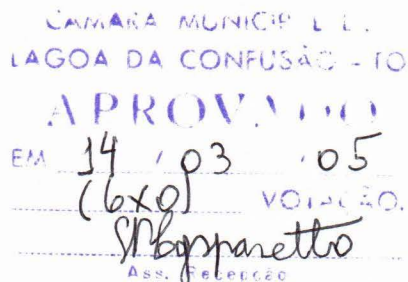 CAMARA MUNICIP L
LAGOA DA CONFUSÃO - TO
APROVADO
EM 14 / 03 / 05
(6x0) VOTAÇÃO.
Ass. Recepção